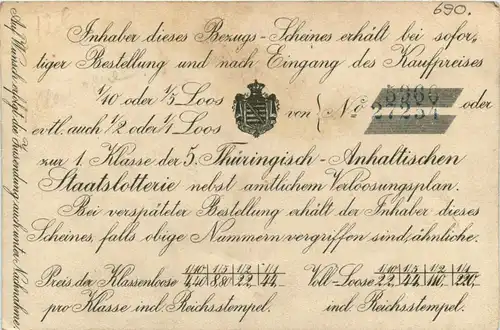 690.
Inhaber dieses Bezugs-Scheines erhält bei sofor-
tiger Bestellung und nach Eingang des Kaufpreises
1/10 oder 1/5 Loos
evtl. auch 1/2 oder 1/1 Loos
von { No
27237
oder
zur 1. Klasse der 5. Thüringisch-Anhaltischen
Staatslotterie nebst amtlichem Verloosungsplan.
Bei verspäteter Bestellung erhält der Inhaber dieses
Scheines, falls obige Nummern vergriffen sind, ähnliche.
Preis der Klassenloose 1/10 1/5 1/2 1/1
4,40 8,80 22,- 44,-
pro Klasse incl. Reichsstempel.
Voll-Loose 1/10 1/5 1/2 1/1
22,- 44,- 110,- 220,-
incl. Reichsstempel.
Auf Wunsch erfolgt die Zusendung auch unter Nachnahme.